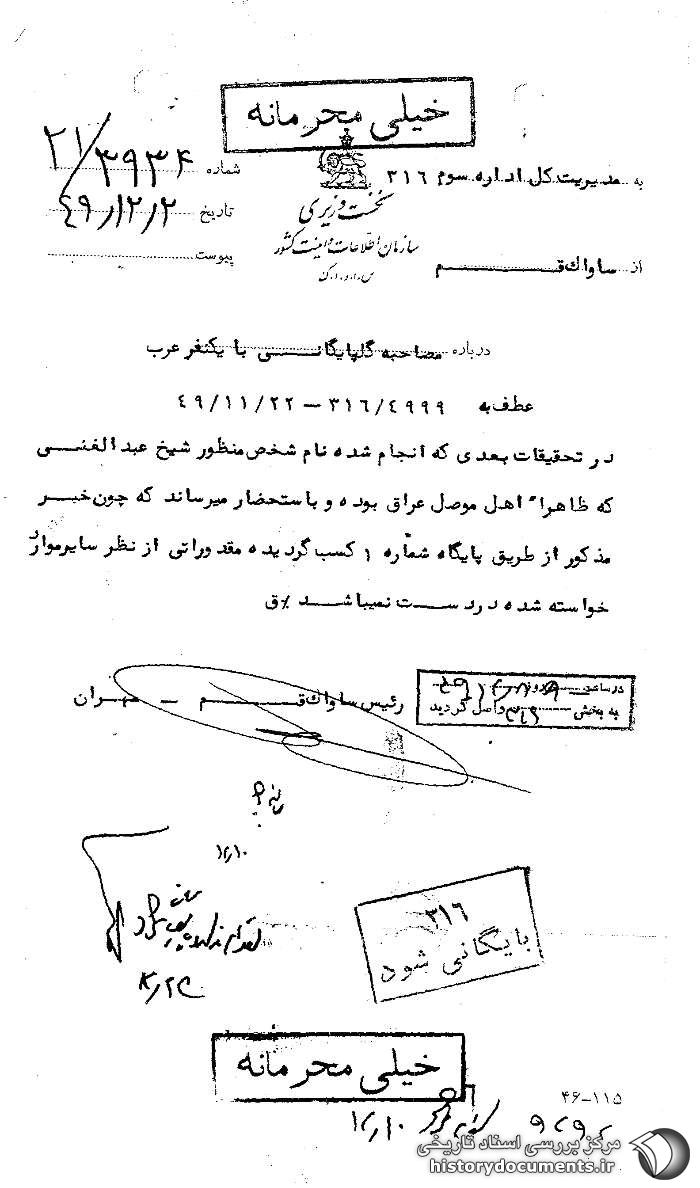 خیلی محرمانه
به مدیریت کل اداره سوم ۳۱۶
شماره ۲۱/۳۹۳۴
نخست وزیری
تاریخ ۴۹/۱۲/۲
سازمان اطلاعات و امنیت کشور
پیوست
از ساواک قم
س.ا.و.ا.ک
درباره مصاحبه گلپایگانی با یکنفر عرب
عطف به ۳۱۶/۴۹۹۹ – ۴۹/۱۱/۲۲
در تحقیقات بعدی که انجام شده نام شخص منظور شیخ عبدالغنی
که ظاهراً اهل موصل عراق بوده و باستحضار میرساند که چون خبر
مذکور از طریق پایگاه شماره ۱ کسب گردیده مقدوراتی از نظر سایر موارد
خواسته شده در دست نمیباشد ٪ق
رئیس ساواک قم – مهران
در ساعت روز
به بخش واصل گردید
۱۲/۱۰
۳۱۶
بایگانی شود
خیلی محرمانه
۴۶-۱۱۵
۱۲/۱۰
مرکز بررسی اسناد تاریخی
historydocuments.ir